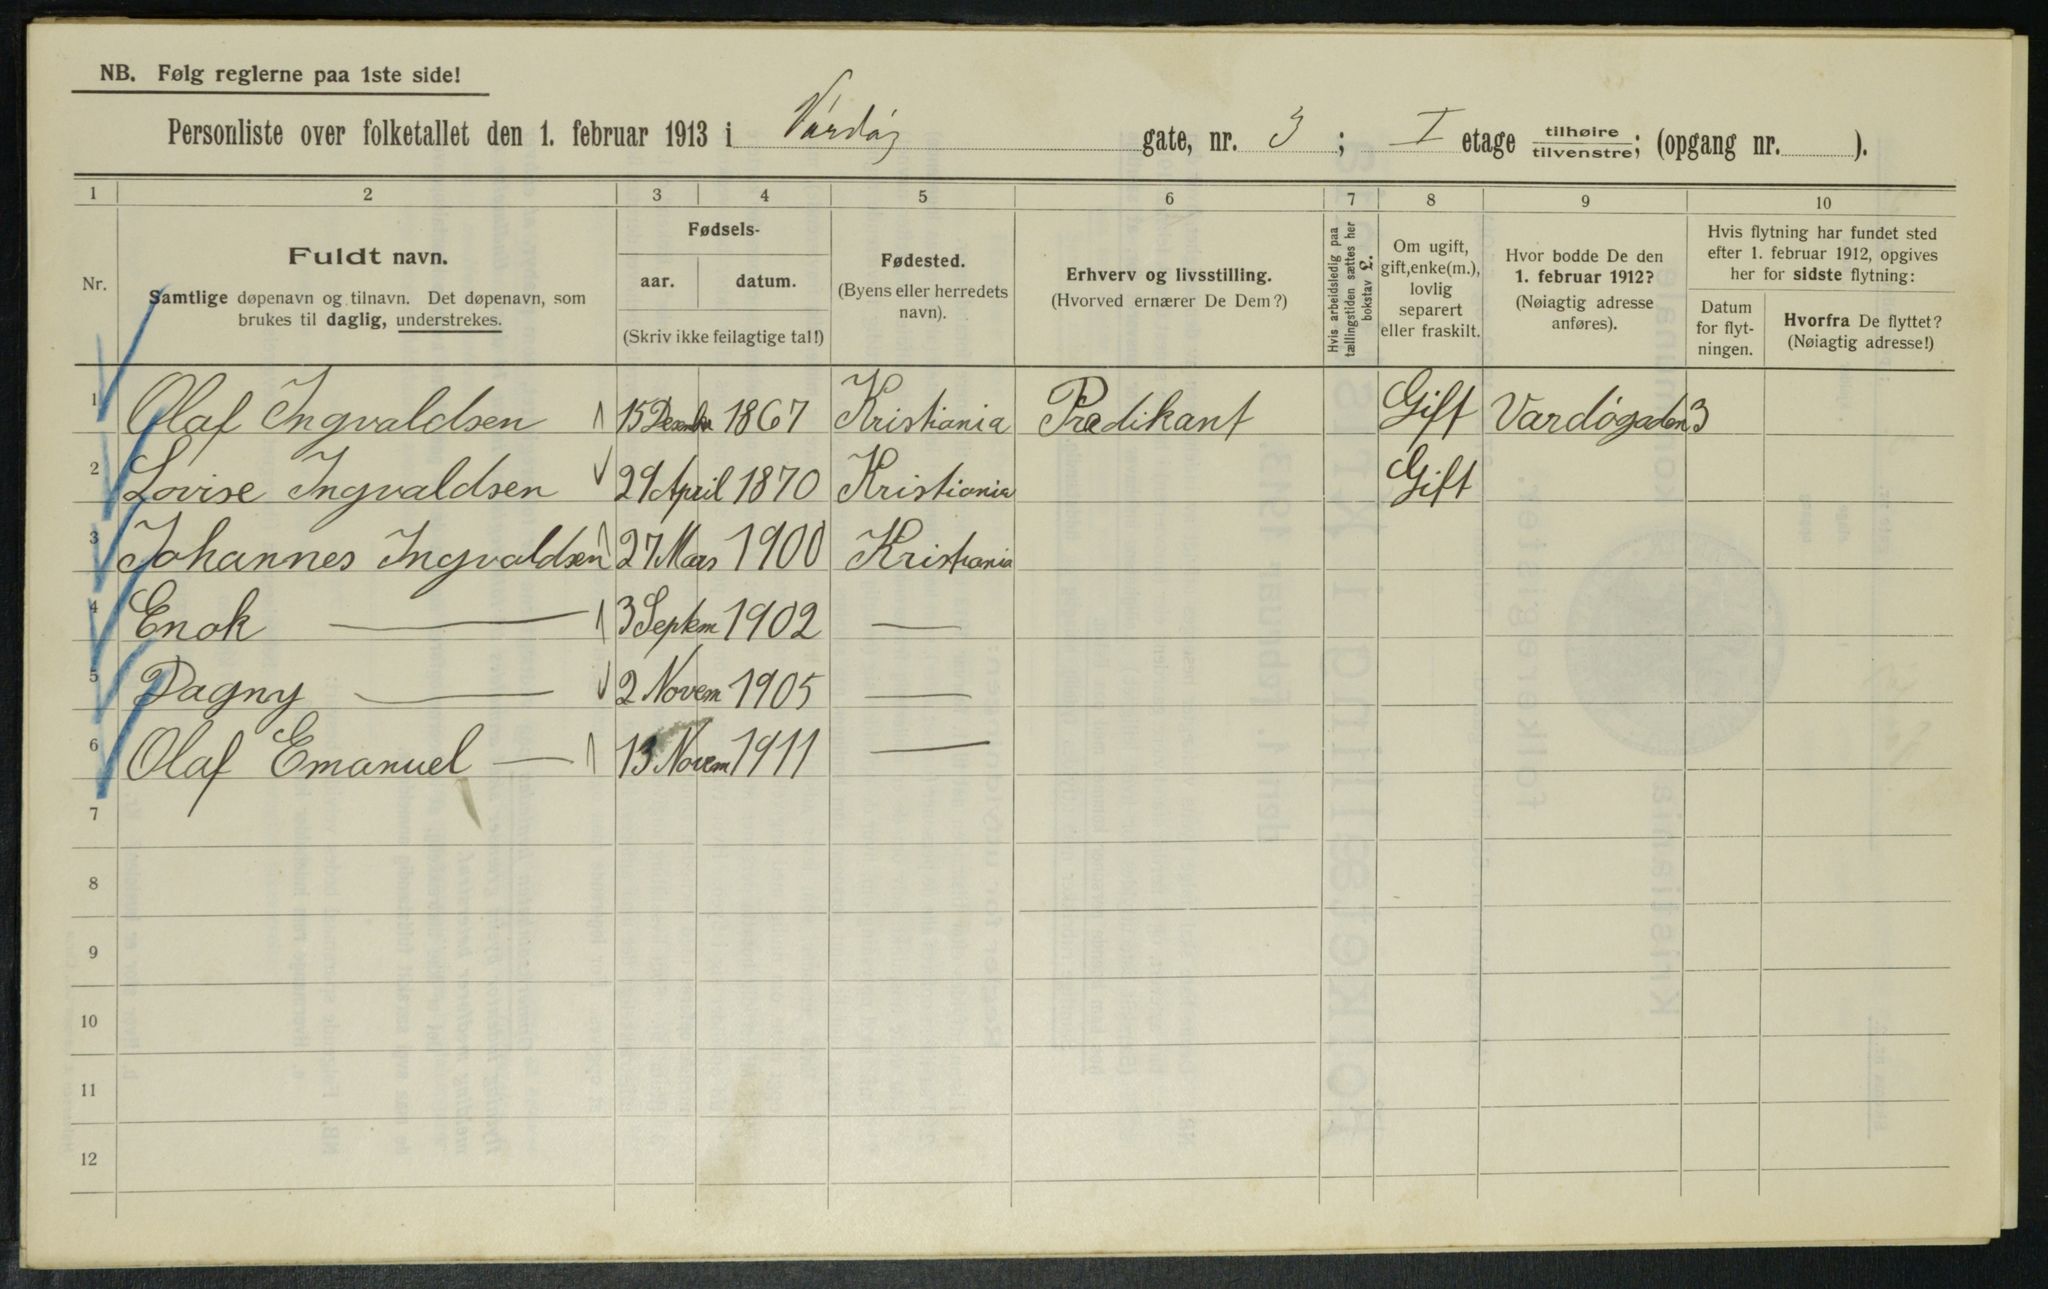 NB. Følg reglerne paa 1ste side!
Personliste over folketallet den 1. februar 1913 i Vardøg gate, nr. 3 ; I etage tilhøire / tilvenstre; (opgang nr. ).
1 2 3 4 5 6 7 8 9 10
Nr.
Fuldt navn.
Samtlige døpenavn og tilnavn. Det døpenavn, som
brukes til daglig, understrekes.
Fødsels-
aar. datum.
(Skriv ikke feilagtige tal!)
Fødested.
(Byens eller herredets
navn).
Erhverv og livsstilling.
(Hvorved ernærer De Dem?)
Hvis arbeidsledig paa
tællingstiden sættes her
bokstav £.
Om ugift,
gift, enke(m.),
lovlig
separert
eller fraskilt.
Hvor bodde De den
1. februar 1912?
(Nøiagtig adresse
anføres).
Hvis flytning har fundet sted
efter 1. februar 1912, opgives
her for sidste flytning:
Datum
for flyt-
ningen.
Hvorfra De flyttet?
(Nøiagtig adresse!)
1 Olaf Ingvaldsen 15 Desember 1867 Kristiania Predikant Gift Vardøgaden 3
2 Lovise Ingvaldsen 29 April 1870 Kristiania Gift
3 Johannes Ingvaldsen 27 Mars 1900 Kristiania
4 Enok — 3 Septem 1902 —
5 Dagny — 2 Novem 1905 —
6 Olaf Emanuel — 13 Novem 1911 —
7
8
9
10
11
12